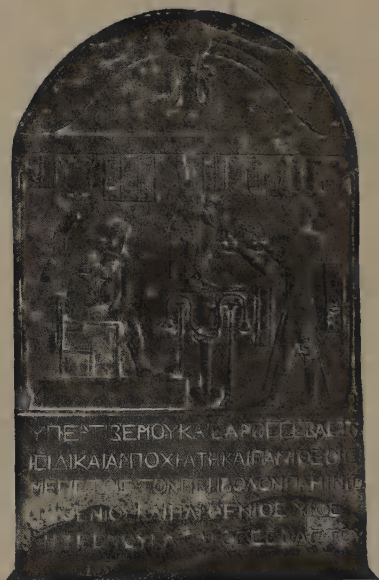 ΥΠΕΡ ΤΙΒΕΡΙΟΥ ΚΑΙΣΑΡΟΣ ΣΕΒΑΣΤΟΥ
ΙΣΙΔΙ ΚΑΙ ΑΡΠΟΧΡΑΤΗ ΚΑΙ ΠΑΝΙ ΘΕΟΙΣ
ΜΕΓΙΣΤΟΙΣ ΤΟΝ ΠΕΡΙΒΟΛΟΝ
ΠΑΡΘΕΝΙΟΥ ΚΑΙ ΠΑΡΘΕΝΙΟΣ ΥΙΟΣ
ΤΙΒΕΡΙΟΥ ΚΑΙΣΑΡΟΣ ΣΕΒΑΣΤΟΥ